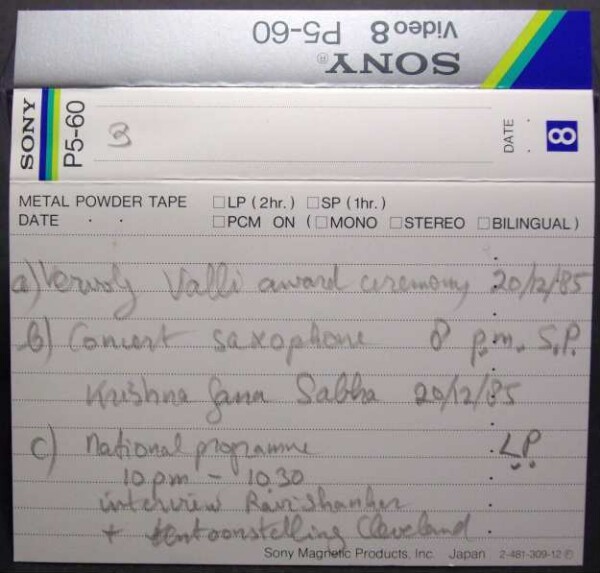 SONY®
Video 8 P5-60
SONY
P5-60
3
DATE . .
8
METAL POWDER TAPE □LP (2hr.) □SP (1hr.)
DATE . . □PCM ON (□MONO □STEREO □BILINGUAL)
a) Vervolg Valli award ceremony 20/12/85
b) Concert saxophone 8 p.m. S.P.
Krishna Gana Sabha 20/12/85
c) National programme L.P.
10 pm - 10 30
interview Ravishanker
+ tentoonstelling Cleveland
Sony Magnetic Products, Inc. Japan 2-481-309-12 Ⓟ